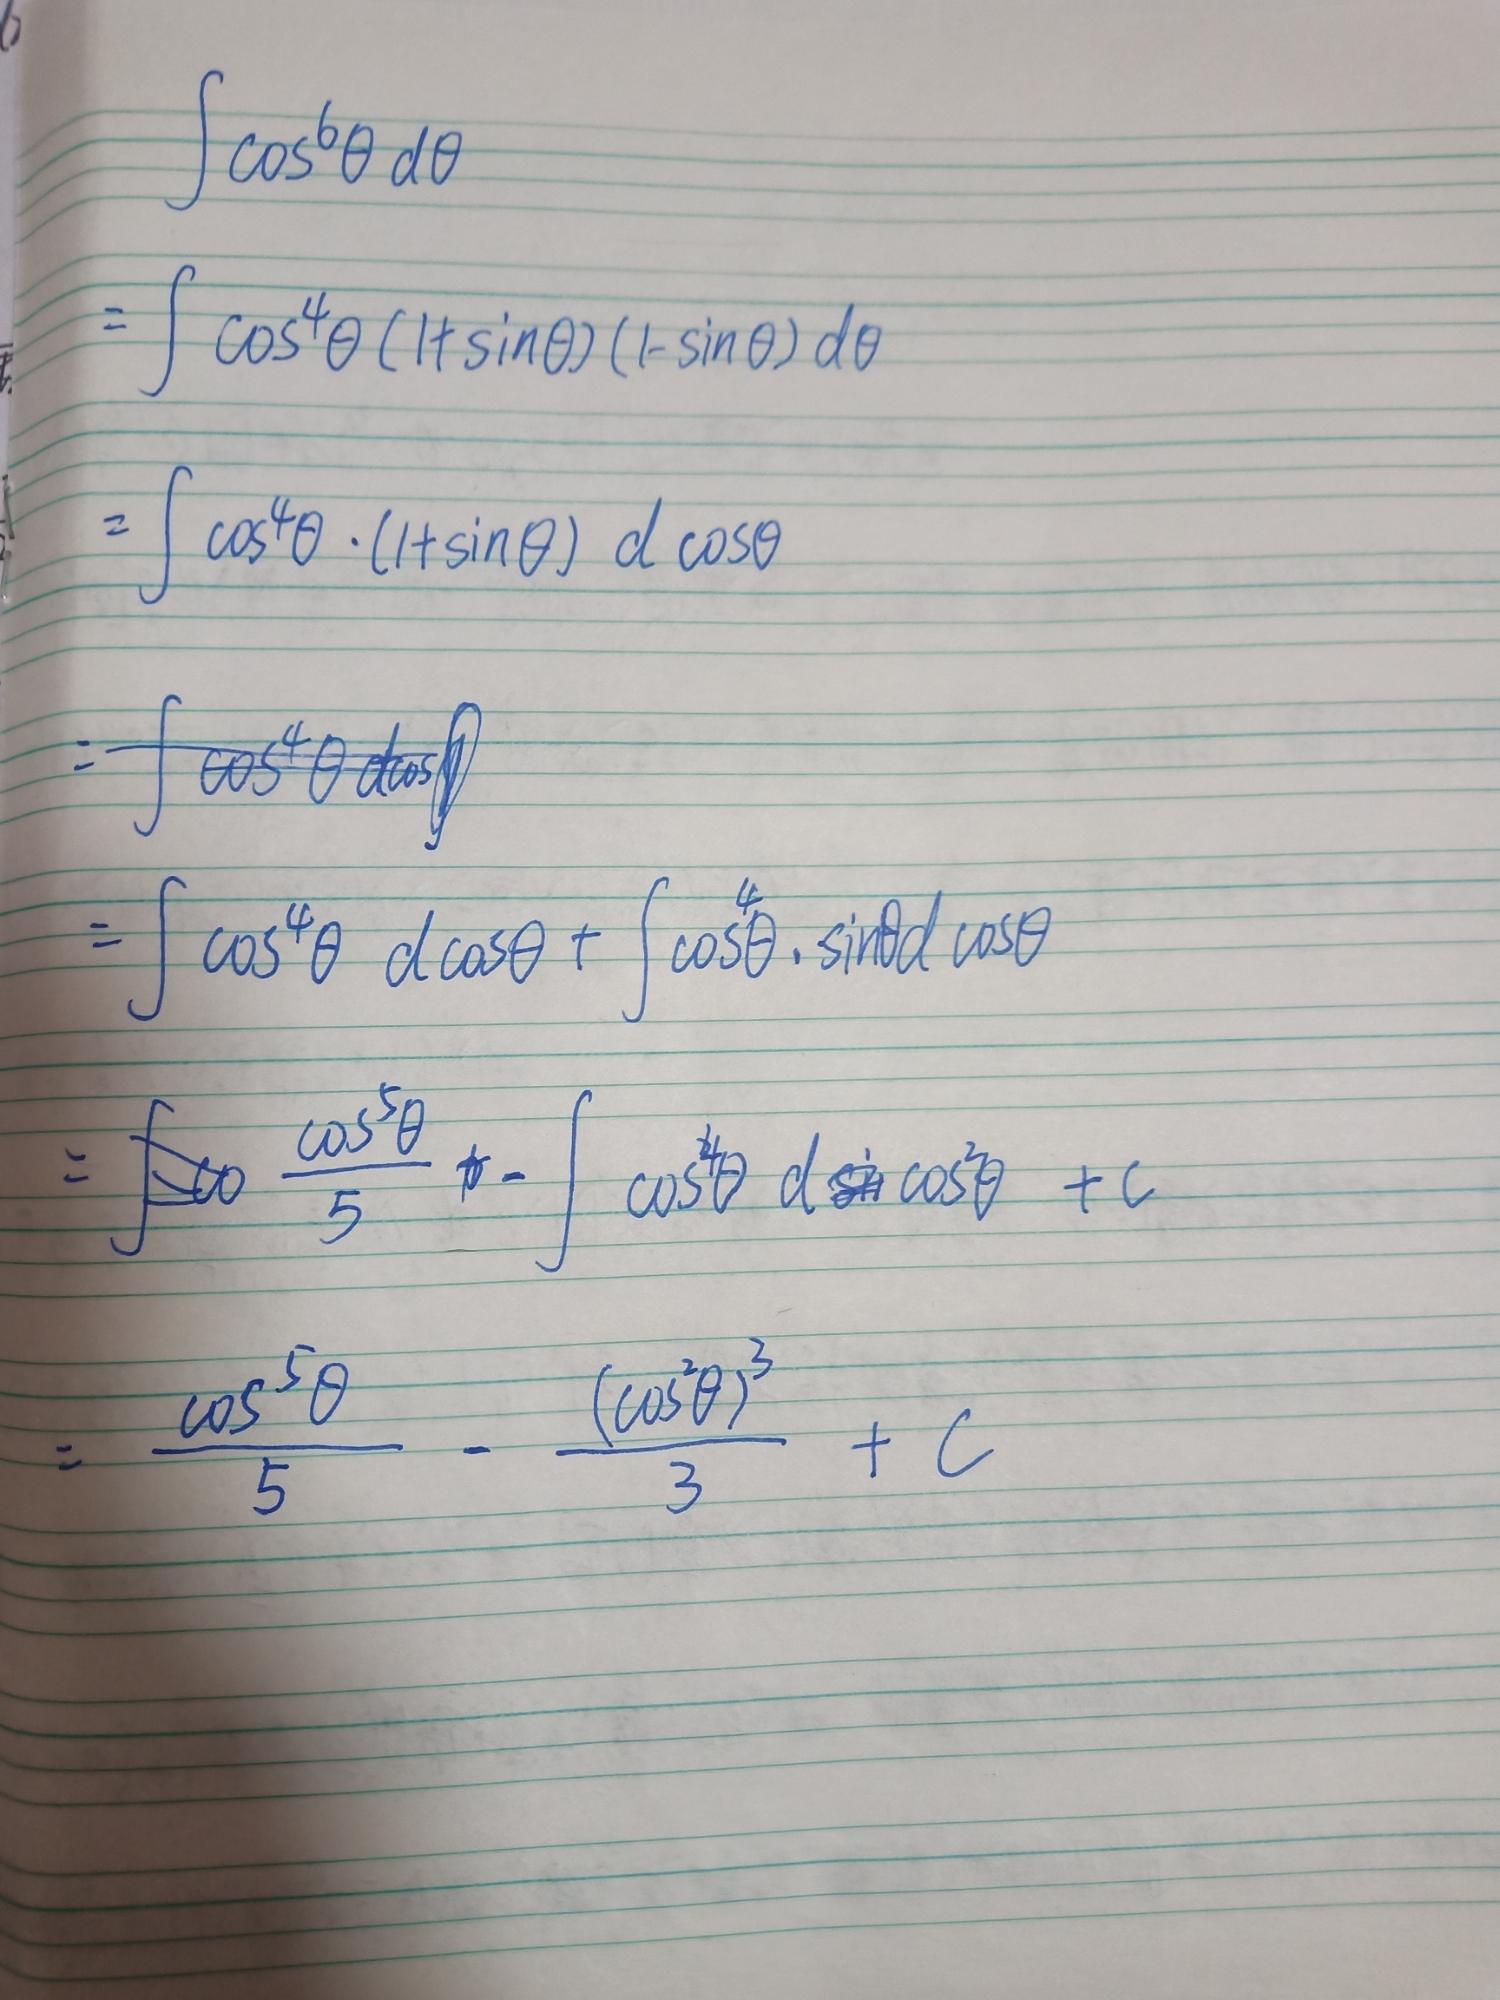 ∫cos⁶θ dθ
= ∫ cos⁴θ (1+sinθ)(1-sinθ) dθ
= ∫ cos⁴θ · (1+sinθ) d cosθ
= ∫ cos⁴θ dcos
= ∫ cos⁴θ d cosθ + ∫ cos⁴θ · sinθ d cosθ
= cos⁵θ/5 - ∫ cos⁴θ d cos²θ + C
= cos⁵θ/5 - (cos²θ)³/3 + C